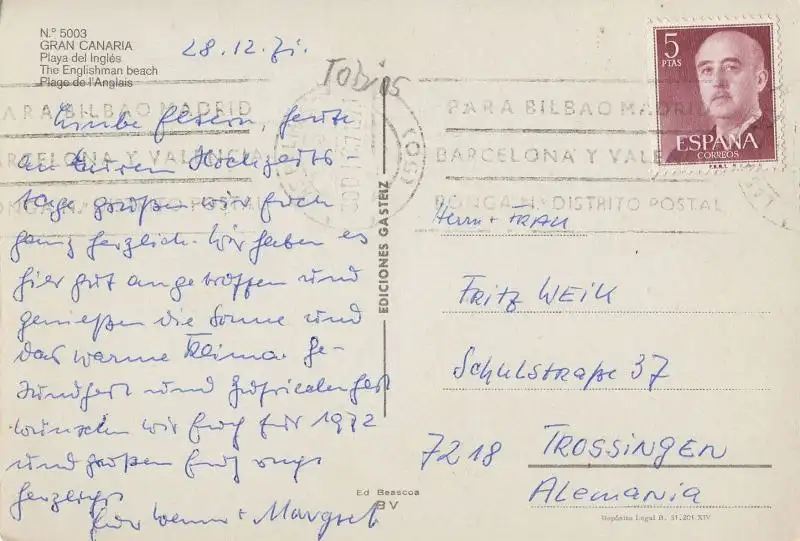 N.º 5003
GRAN CANARIA
Playa del Inglés
The Englishman beach
Plage de l'Anglais
28.12.71.
Tobias
Liebe Eltern, heute
an Eurem Hochzeits-
tage grüßen wir Euch
ganz herzlich. Wir haben es
hier gut angetroffen und
genießen die Sonne und
das warme Klima. Ge-
sundheit und Zufriedenheit
wünschen wir Euch für 1972
und grüßen Euch
herzlichst
Eure Werner + Margret
EDICIONES GASTEIZ
Ed Beascoa
BV
5
PTAS
ESPAÑA
CORREOS
F.N.M.T.
PARA BILBAO MADRID
BARCELONA Y VALENCIA
PONGA N.º DISTRITO POSTAL
PARA BILBAO MADRI
BARCELONA Y VALE
PONGA N.º DISTRITO POSTAL
Herrn + FRAU
FRITZ WEIK
SCHULSTRAßE 37
7218 TROSSINGEN
Alemania
Depósito Legal B. 51.201 XIV